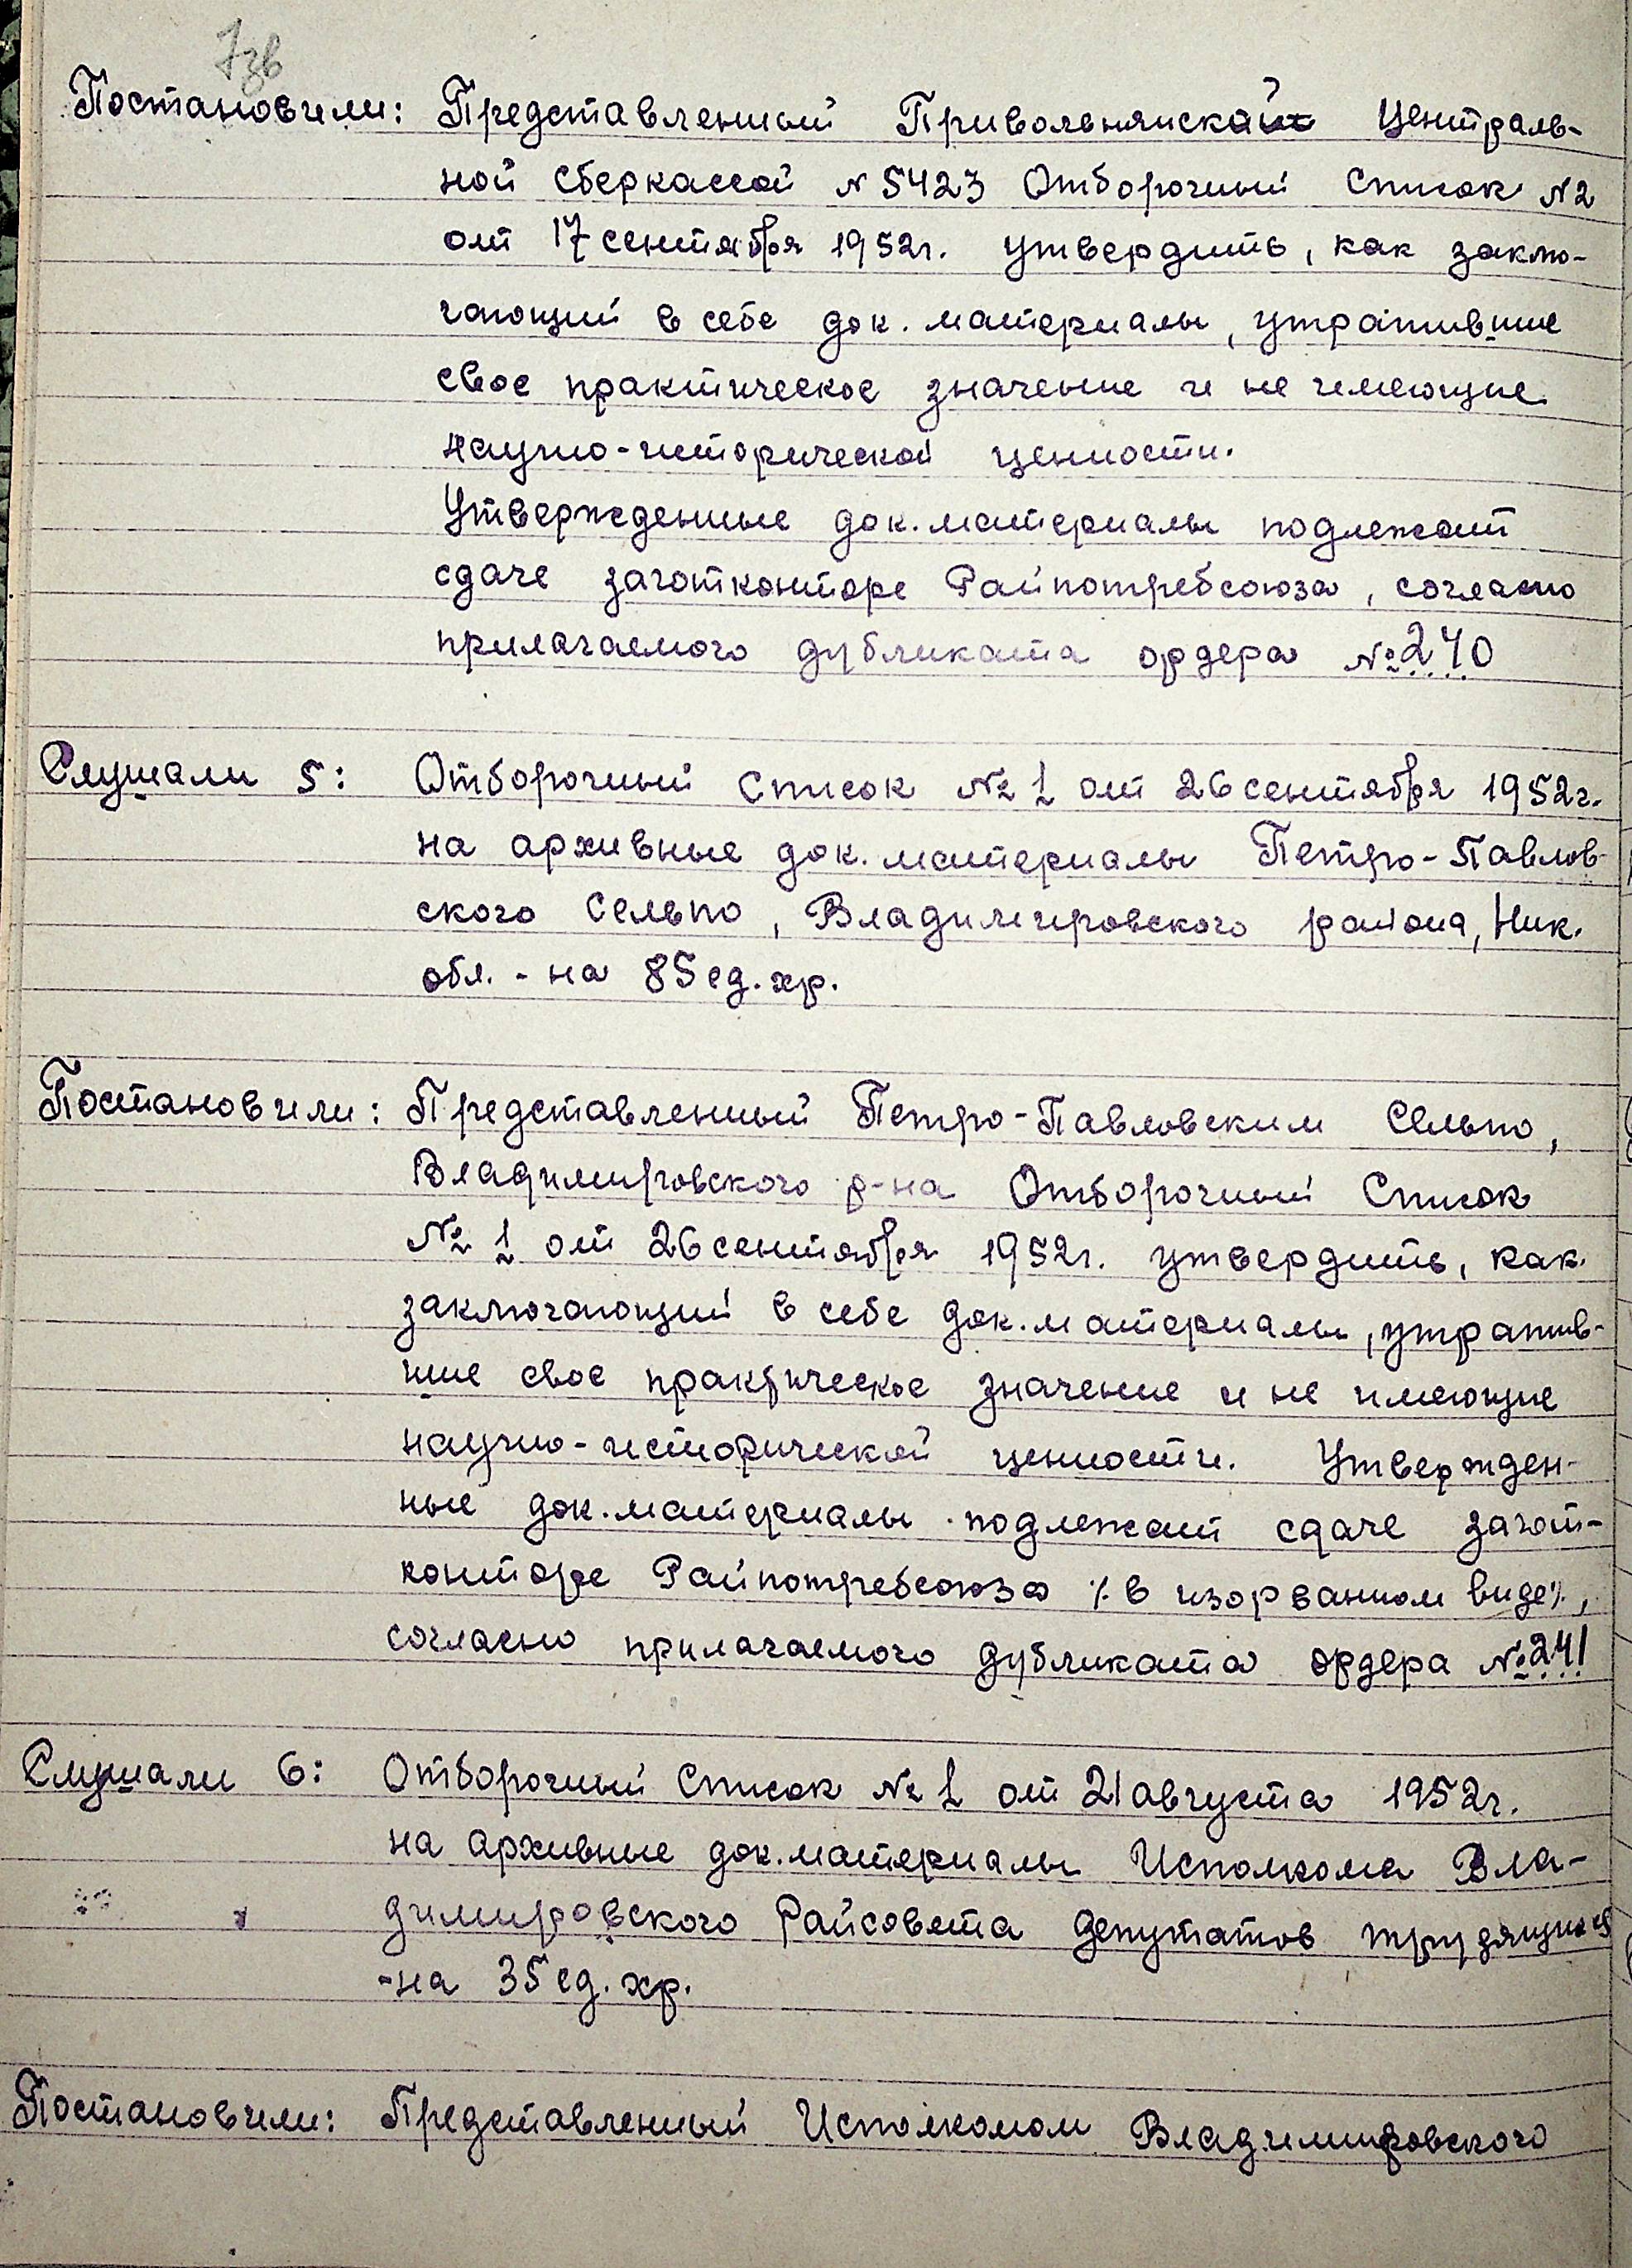 7зв
Постановили: Представленный Привольнянской Централь-
ной сберкассой N 5423 Отборочный Список N2
от 17 сентября 1952г. утвердить, как заклю-
чающий в себе док. материалы, утратившие
свое практическое значение и не имеющие
научно-исторической ценности.
Утвержденные док. материалы подлежат
сдаче заготконторе Райпотребсоюза, согласно
прилагаемого дубликата ордера №240
Слушали 5: Отборочный Список №1 от 26 сентября 1952г.
на архивные док. материалы Петро-Павлов-
ского Сельпо, Владимировского района, Ник.
обл. - на 85 ед. хр.
Постановили: Представленный Петро-Павловским Сельпо,
Владимировского р-на Отборочный Список
№1 от 26 сентября 1952г. утвердить, как
заключающий в себе док. материалы, утратив-
шие свое практическое значение и не имеющие
научно-исторической ценности. Утвержден-
ные док. материалы подлежат сдаче загот-
конторе Райпотребсоюза ٪ в изорванном виде٪,
согласно прилагаемого дубликата ордера №241
Слушали 6: Отборочный Список №1 от 21 августа 1952г.
на архивные док. материалы Исполкома Вла-
димировского Райсовета депутатов трудящихся
- на 35 ед. хр.
Постановили: Представленный Исполкомом Владимировского